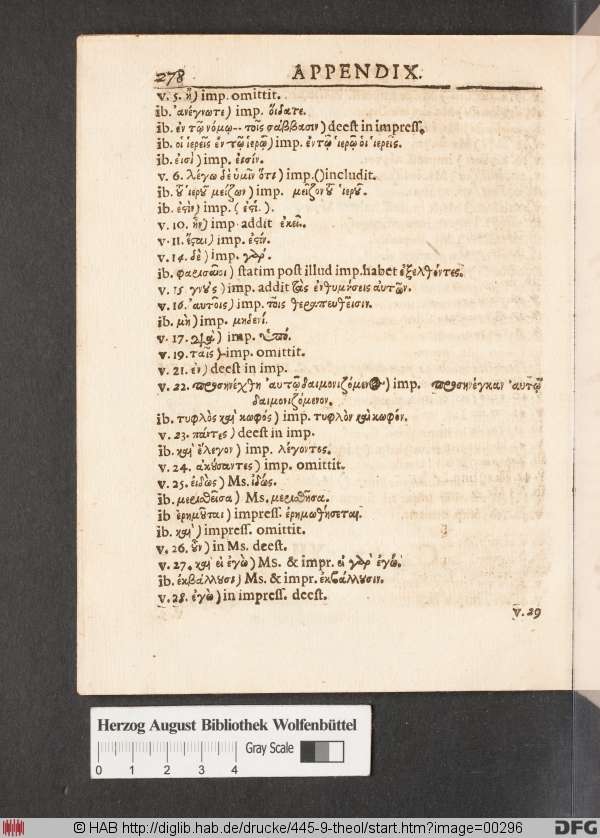 278 APPENDIX.
v. 5. ἢ) imp. omittit.
ib. ἀνέγνωτε) imp. ὄιδατε.
ib. ἐν τῷ νόμῳ -- τοῖς σαββασιν) deest in impress.
ib. οἱ ἱερεῖς ἐν τῷ ἱερῷ) imp. ἐν τῷ ἱερῷ ὁἱ ἱερεῖς.
ib. ἐισὶ) imp. ἐισίν.
v. 6. λέγω δὲ ὑμῖν ὅτι) imp.()includit.
ib. τȣ͂ ἱερȣ͂ μείζων) imp. μεῖζον τȣ͂ ἱερȣ͂.
ib. ἐϛὶν) imp. ( ἐϛί. ).
v. 10. ἦν) imp. addit ἐκεῖ.
v. 11. ἔϛαι) imp. ἐϛίν.
v. 14. δὲ) imp. γὰρ.
ib. φαρισαῖοι) statim post illud imp. habet ἐξελθόντες.
v. 15. γνȣ̀ς) imp. addit τὰς ἐνθυμήσεις αὐτῶν.
v. 16. ἀυτοῖς) imp. τοῖς θεραπευθεῖσιν.
ib. μὴ) imp. μηδενί.
v. 17. διὰ) imp. ὑπό.
v. 19. ταῖς) imp. omittit.
v. 21. ἐν) deest in imp.
v. 22. προσηνέχθη ἀυτῷ δαιμονιζόμενος) imp. προσηνέγκαν ἀυτῷ
δαιμονιζόμενον.
ib. τυφλὸς καὶ κωφός) imp. τυφλὸν καὶ κωφόν.
v. 23. πάντες) deest in imp.
ib. καὶ ἔλεγον) imp. λέγοντες.
v. 24. ἀκȣ́σαντες) imp. omittit.
v. 25. ἐιδὼς) Ms. ἰδώς.
ib. μερισθεῖσα) Ms. μερισθῆσα.
ib ἐρημȣ͂ται) impress. ἐρημωθήσεται.
ib. καὶ) impress. omittit.
v. 26. ȣ̓͂ν) in Ms. deest.
v. 27. καὶ ει ἐγὼ) Ms. & impr. ει γὰρ ἐγώ.
ib. ἐκβάλλȣσι) Ms. & impr. ἐκβάλλȣσιν.
v. 28. ἐγὼ) in impress. deest.
v. 29
Herzog August Bibliothek Wolfenbüttel
Gray Scale
0 1 2 3 4
© HAB http://diglib.hab.de/drucke/445-9-theol/start.htm?image=00296
DFG